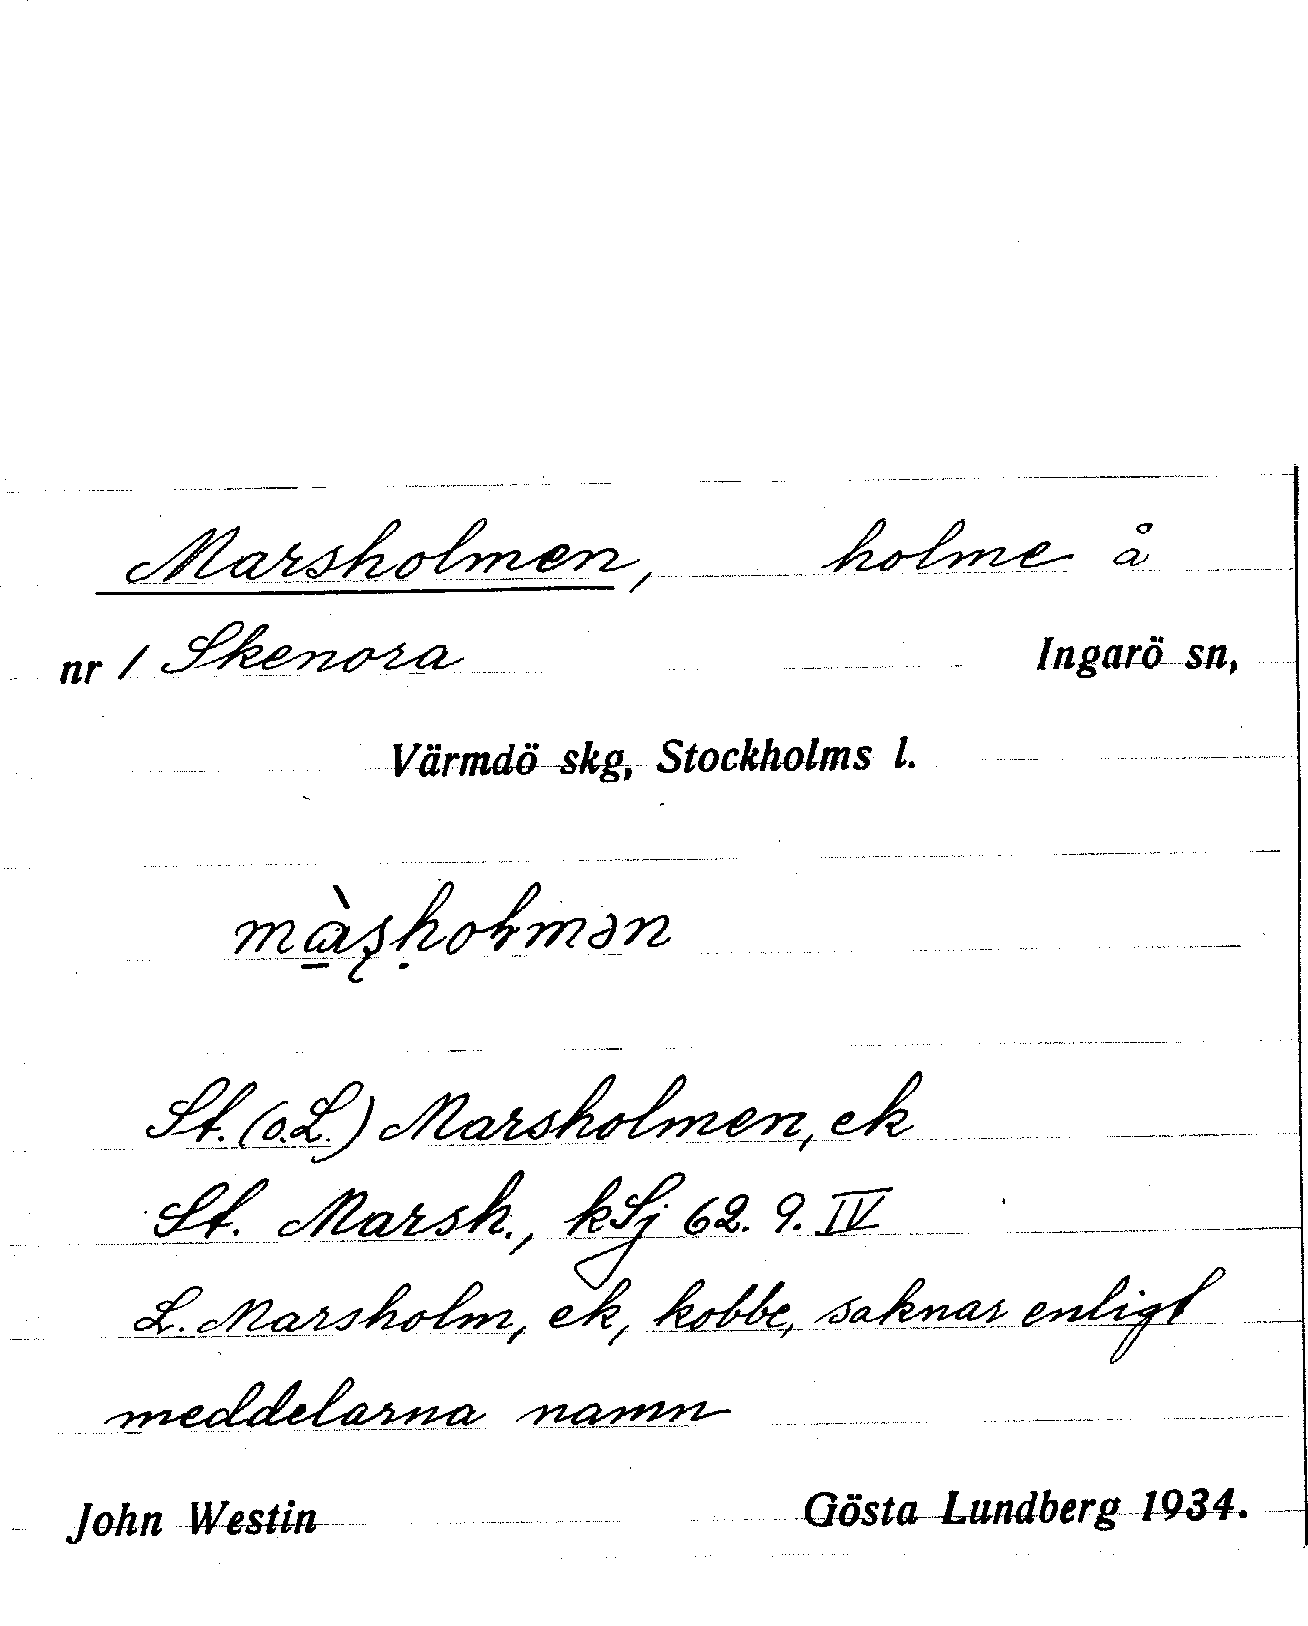 Marsholmen, holme å
nr 1 Skenora Ingarö sn,
Värmdö skg, Stockholms l.
St. (o. L.) Marsholmen, ek
St. Marsh., kSj 62. 9. IV
L. Marsholm, ek, kobbe, saknar enligt
meddelarna namn
John Westin Gösta Lundberg 1934.